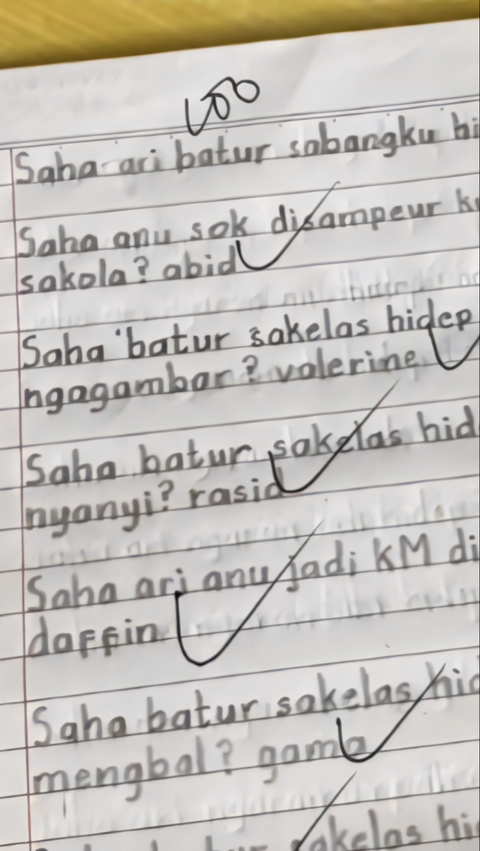 100
Saha ari batur sabangku hi
Saha anu sok disampeur k
sakola? abid
Saha batur sakelas hidep
ngagambar? valerine
Saha batur sakelas hid
nyanyi? rasid
Saha ari anu jadi KM di
daffin
Saha batur sakelas hid
mengbal? gama
sakelas hi